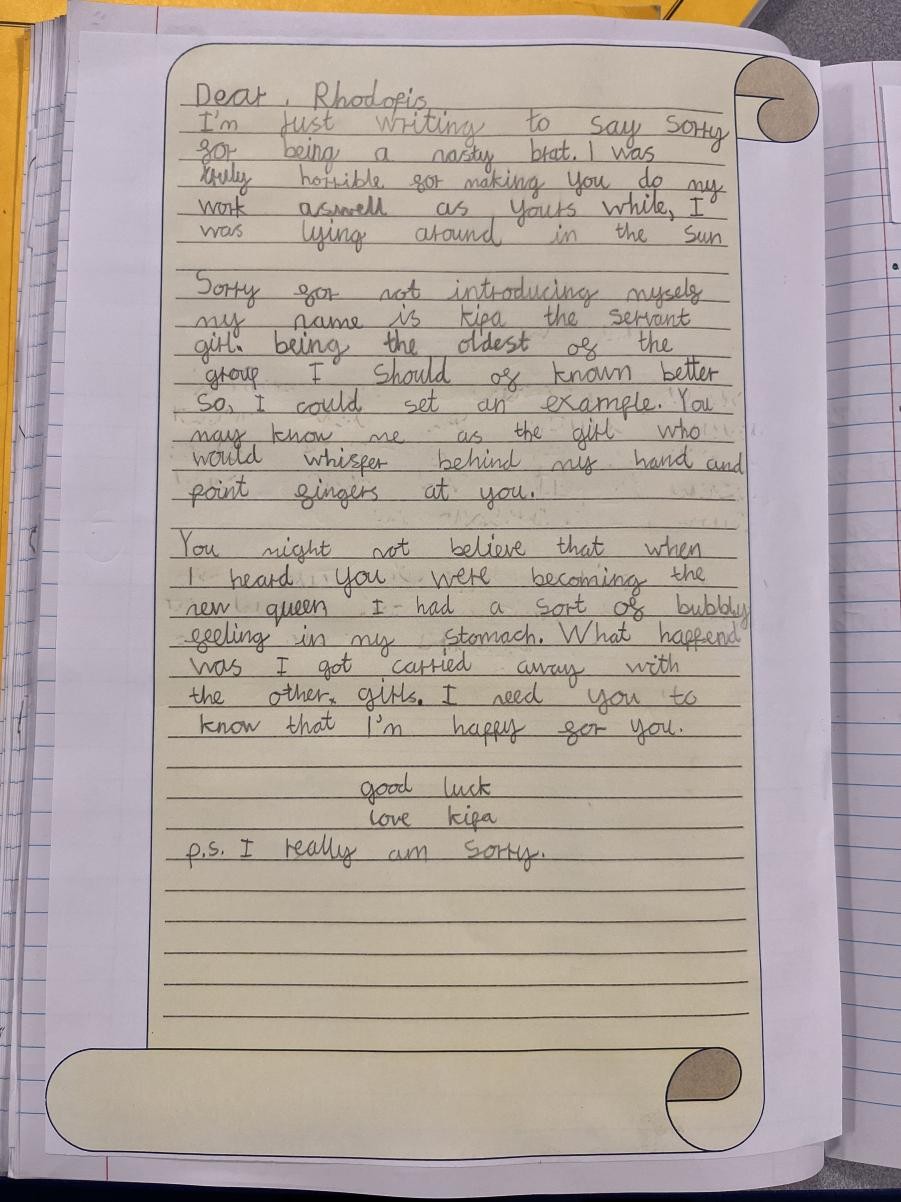 Dear, Rhodopis
I'm just writing to say sorry
for being a nasty brat. I was
truly horrible for making you do my
work aswell as yours while, I
was lying around in the sun
Sorry for not introducing myself
my name is kipa the servant
girl. being the oldest of the
group I should of known better
So, I could set an example. You
may know me as the girl who
would whisper behind my hand and
point fingers at you.
You might not believe that when
I heard you were becoming the
new queen I had a sort of bubbly
feeling in my stomach. What happend
was I got carried away with
the other girls. I need you to
know that I'm happy for you.
good luck
love kipa
p.s. I really am sorry.